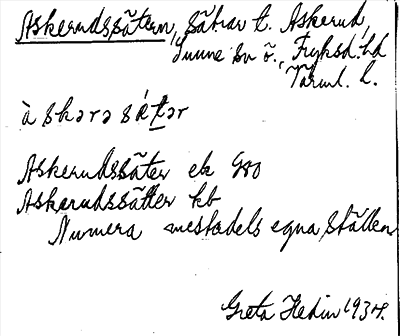 Askerudssätern, sätrar t. Askerud,
Sunne sn ö., Fryksd. hd
Värml. l.
à skərə sǽtər
Askerudssäter ek 
Askerudssätter kb
Numera mestadels egna ställen
Greta Hedin 1934.